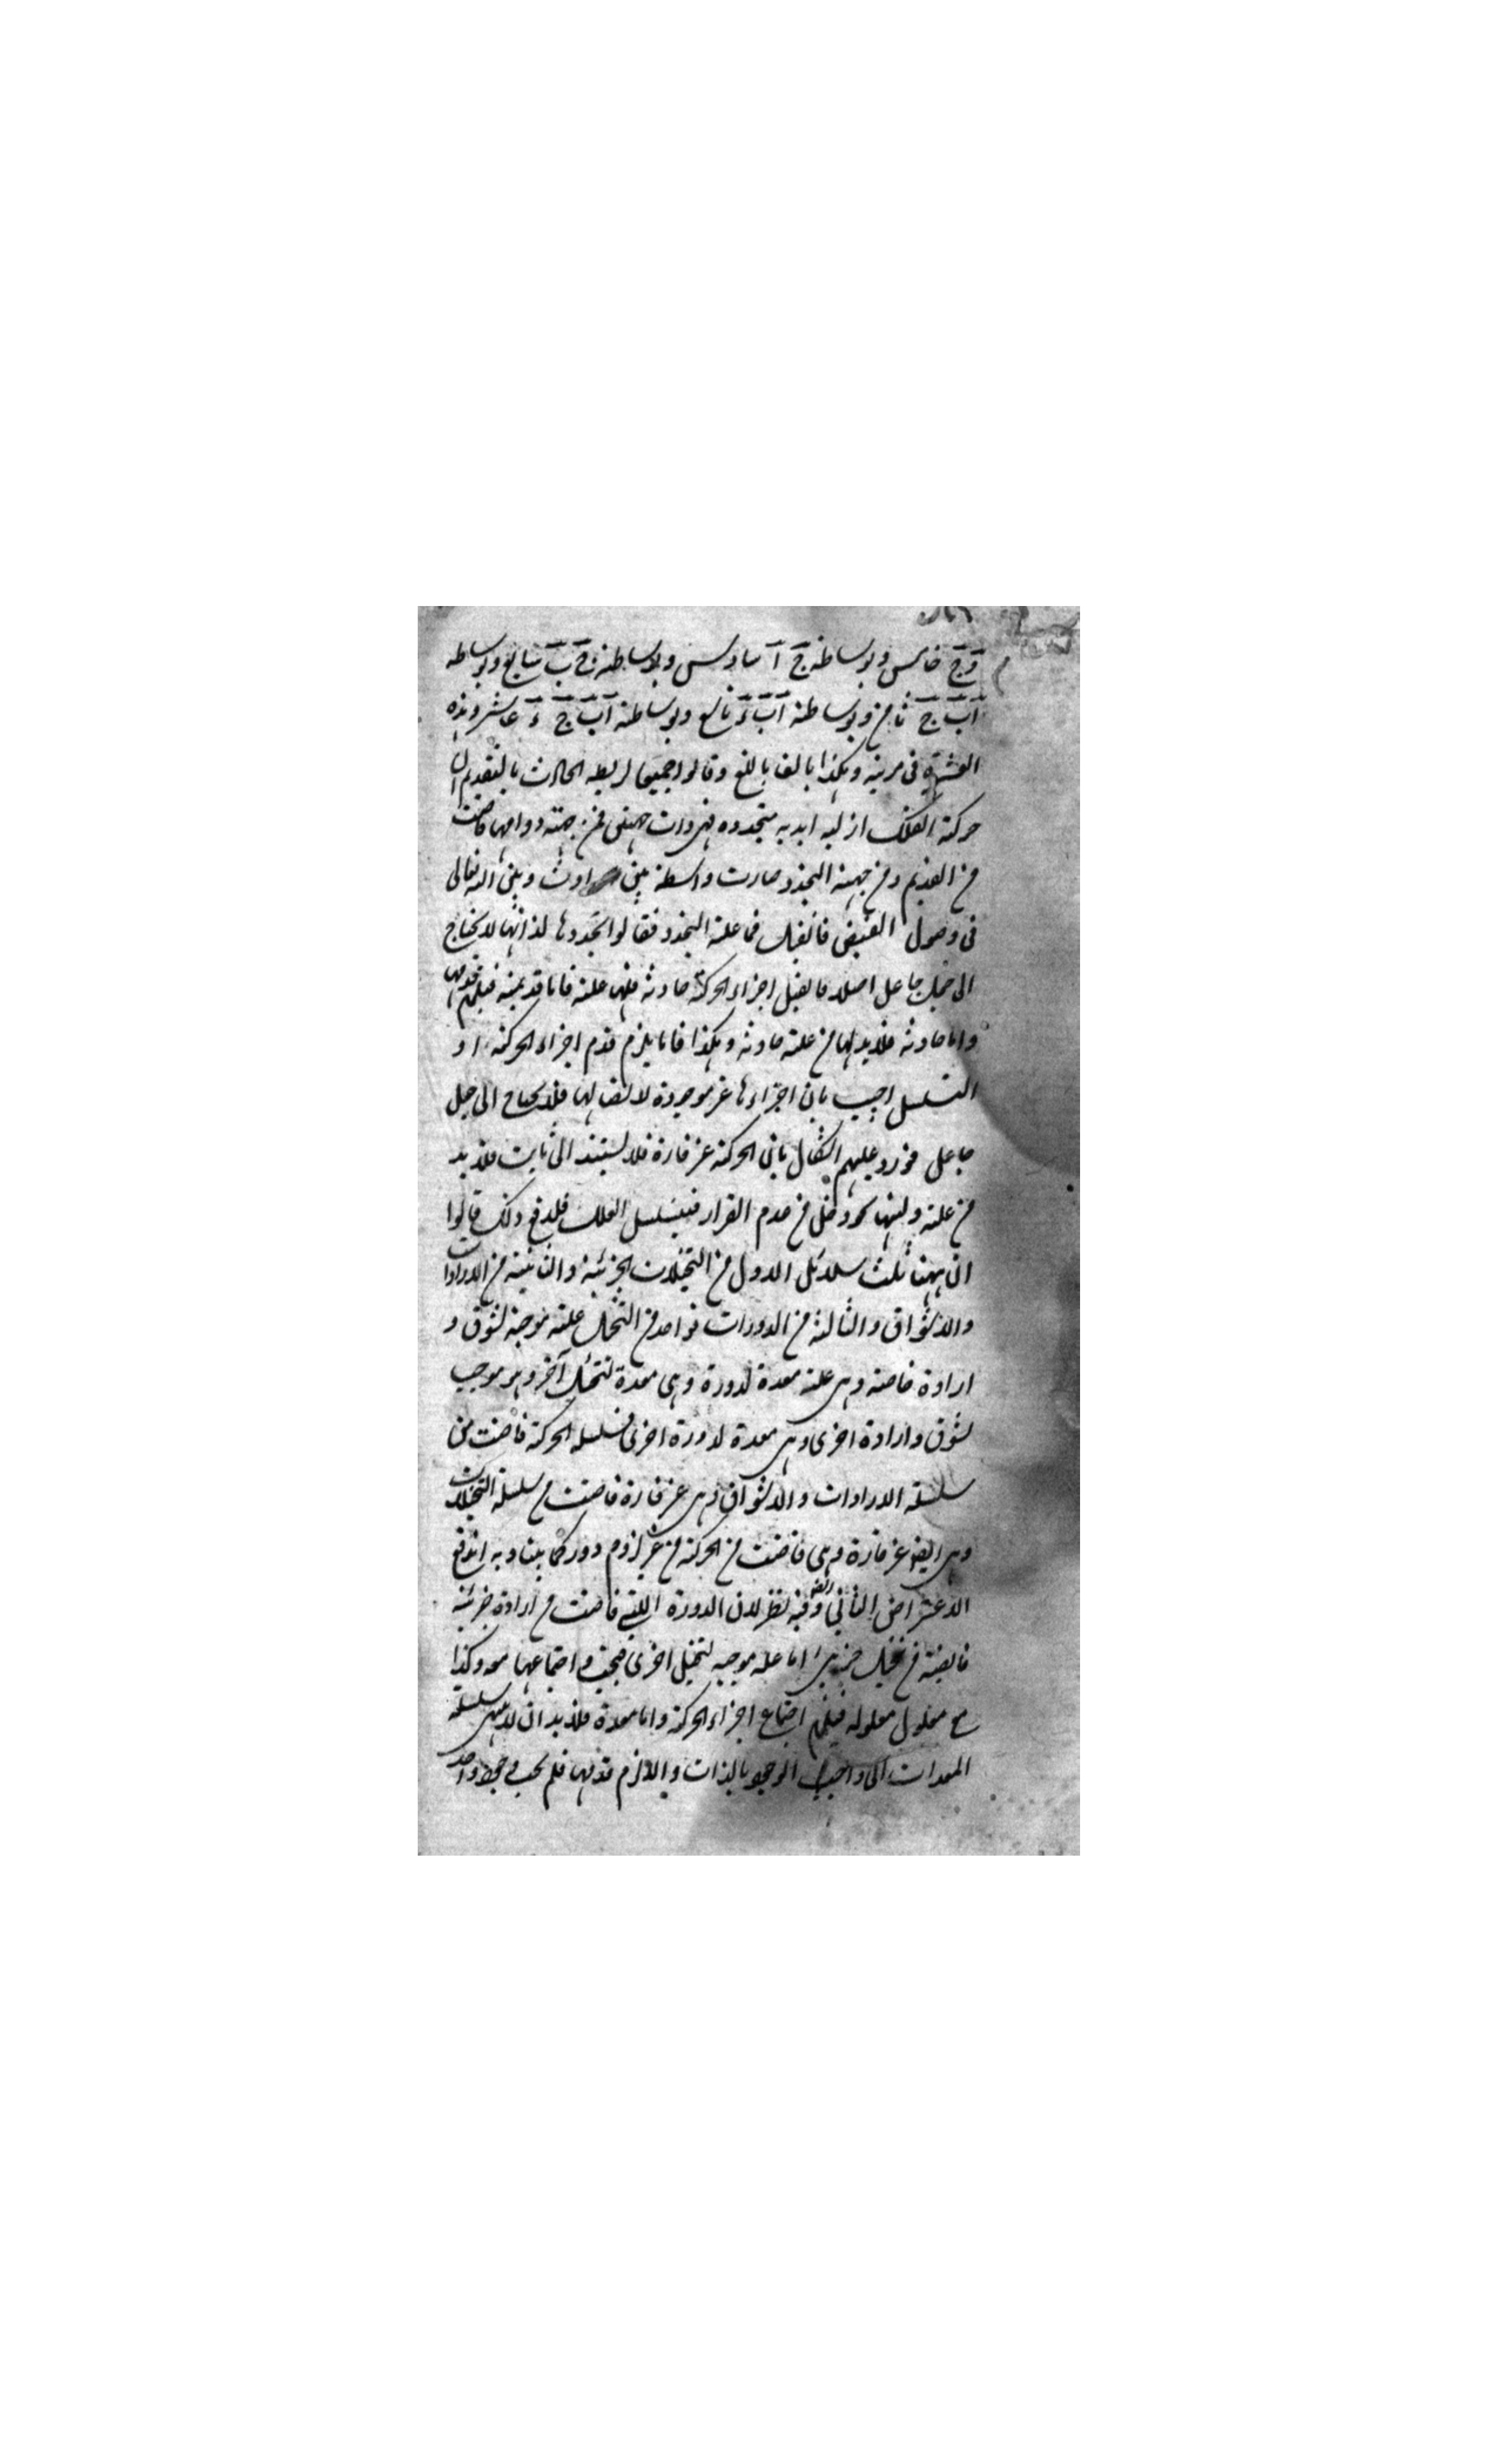 وج خامس وبوساطة ج ا سادس وبوساطة ج ب سابع وبوساطة
ا ب ج ثامن وبوساطة ا ب د تاسع وبوساطة ا ب ج د عاشر وهذه
العشرة فى مرتبة وهكذا بالغا ما بلغ وقالوا جميعا لربط الحادث بالقديم ان
حركة الفلك ازلية ابدية متجددة فهى ذات جهتين فمن جهة دوامها فاضت
من القديم ومن جهة التجدد صارت واسطة بين الحوادث وبين الله تعالى
فى وصول الفيض فان قيل فما علة التجدد فقالوا تجددها لذاتها لا يحتاج
الى جعل جاعل اصلا فان قيل اجزاء الحركة حادثة فلها علة فاما قديمة فيلزم قدمها
واما حادثة فلا بد لها من علة حادثة وهكذا فاما يلزم قدم اجزاء الحركة او
التسلسل اجيب بان اجزاءها غير موجودة لا لها فلا يحتاج الى جعل
جاعل فورد عليهم اشكال بان الحركة غير قارة فلا تستند الى ثابت فلا بد
من علة فى عدم القرار فيتسلسل العلل فلدفع ذلك قالوا
ان ههنا ثلث سلاسل الاول من التخيلات الجزئية والثانية من الارادات
والاشواق والثالثة من الدورات فواحد من التخيل علة موجبة لشوق و
ارادة خاصة وهى علة معدة لدورة وهى معدة لتخيل آخر وهو موجب
لشوق وارادة اخرى وهى معدة لدورة اخرى فسلسلة الحركة فاضت من
سلسلة الارادات والاشواق وهى غير قارة فاضت من سلسلة التخيلات
وهى ايضا غير قارة وهى فاضت من الحركة من غير لزوم دور كما بينا وبه اندفع
الاعتراض الثانى ايضا وفيه نظر لان الدورة اللتى فاضت من ارادة جزئية
فايضة من تخيل جزئى اما علة موجبة لتخيل اخرى فيجب اجتماعها معه وكذا
مع معلول معلوله فيلزم اجتماع اجزاء الحركة واما معدة فلا بد ان لا ينتهى سلسلة
المعدات الى واجب الوجود بالذات والا لزم قدمها فلم يجب واحد